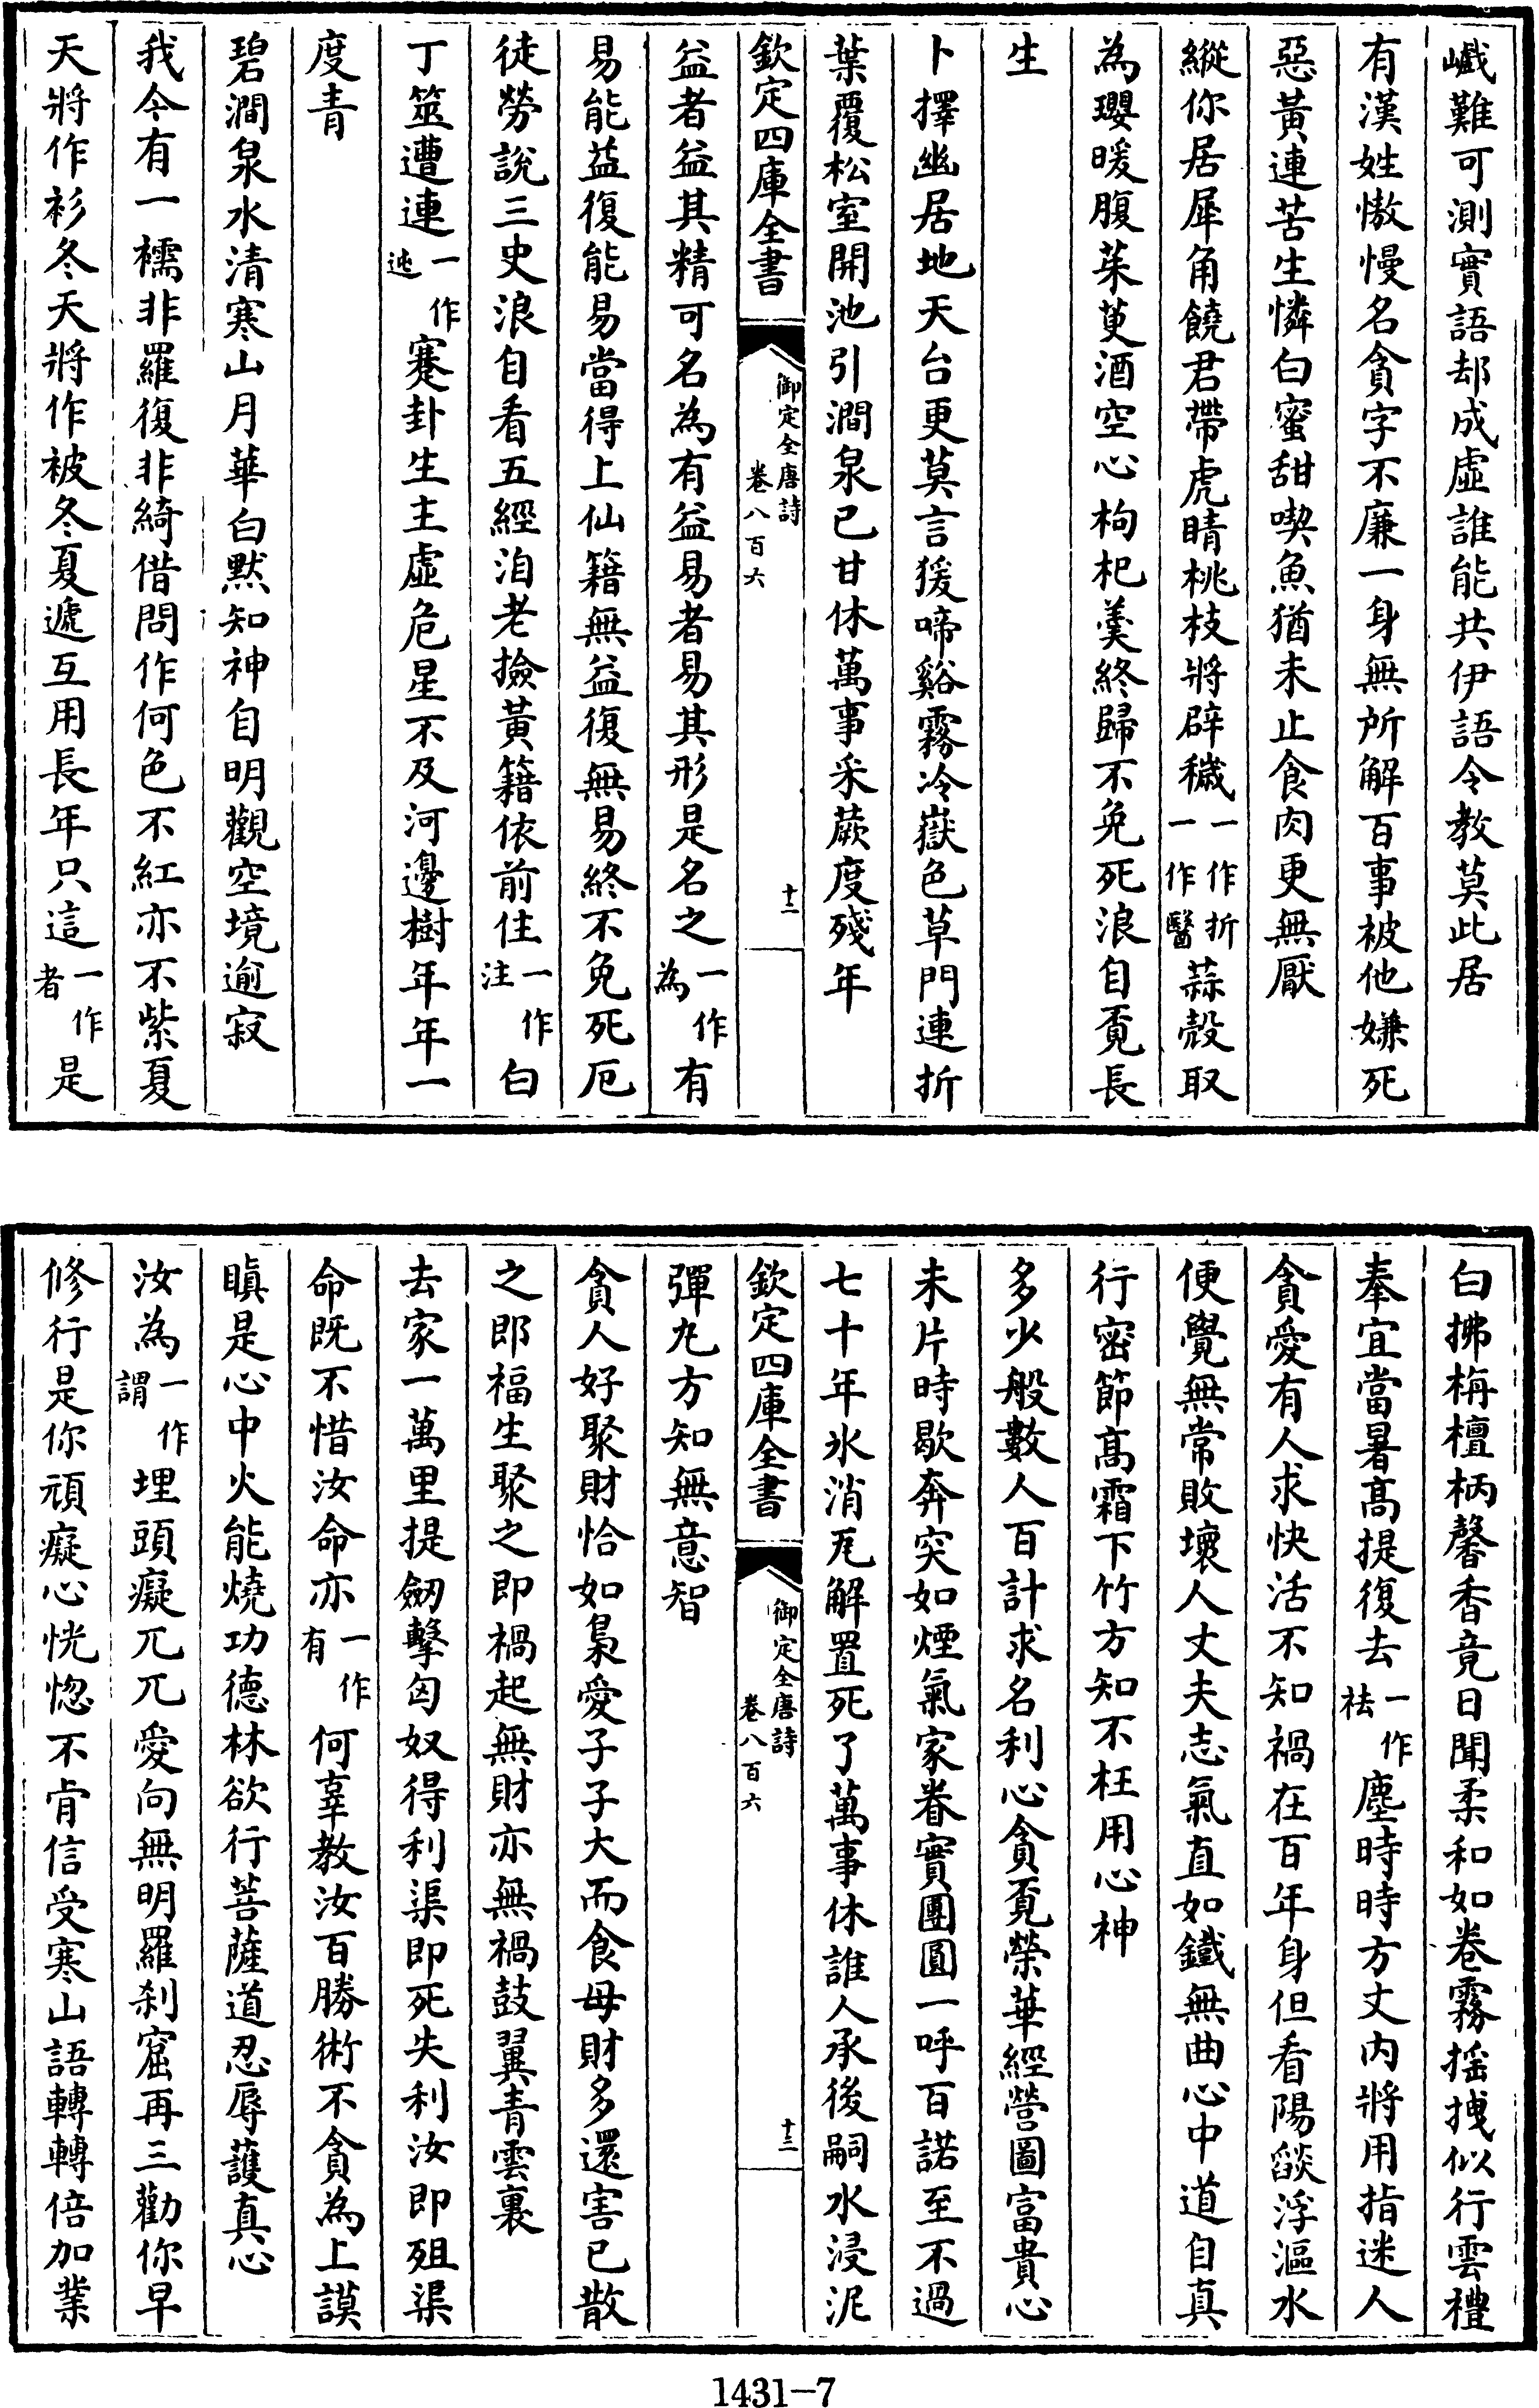 巇難可測實語却成虛誰能共伊語令教莫此居
有漢姓慠慢名貪字不廉一身無所解百事被他嫌死
惡黃連苦生憐白蜜甜喫魚猶未止食肉更無厭
縱你居犀角饒君帶虎睛桃枝將辟穢一作折一作醫蒜殼取
為瓔暖腹茱萸酒空心枸杞羹終歸不免死浪自覓長
生
卜擇幽居地天台更莫言猨啼谿霧冷嶽色草門連折
葉覆松室開池引澗泉已甘休萬事采蕨度殘年
欽定四庫全書
御定全唐詩
卷八百六
十二
益者益其精可名為有益易者易其形是名之一作為有
易能益復能易當得上仙籍無益復無易終不免死厄
徒勞說三史浪自看五經洎老撿黃籍依前住一作注白
丁筮遭連一作迍蹇卦生主虛危星不及河邊樹年年一
度青
碧澗泉水清寒山月華白默知神自明觀空境逾寂
我今有一襦非羅復非綺借問作何色不紅亦不紫夏
天將作衫冬天將作被冬夏遞互用長年只這一作者是
白拂栴檀柄馨香竟日聞柔和如卷霧揺拽似行雲禮
奉宜當暑髙提復去一作袪塵時時方丈內將用指迷人
貪愛有人求快活不知禍在百年身但看陽燄浮漚水
便覺無常敗壞人丈夫志氣直如鐵無曲心中道自真
行密節髙霜下竹方知不枉用心神
多少般數人百計求名利心貪覓榮華經營圖富貴心
未片時歇奔突如煙氣家眷實團圓一呼百諾至不過
七十年氷消瓦解置死了萬事休誰人承後嗣水浸泥
欽定四庫全書
御定全唐詩
卷八百六
十三
彈丸方知無意智
貪人好聚財恰如梟愛子子大而食母財多還害已散
之即福生聚之即禍起無財亦無禍鼓翼青雲裏
去家一萬里提劒擊匈奴得利渠即死失利汝即殂渠
命既不惜汝命亦一作有何辜教汝百勝術不貪為上謨
瞋是心中火能燒功德林欲行菩薩道忍辱護真心
汝為一作謂埋頭癡兀兀愛向無明羅剎窟再三勸你早
修行是你頑癡心恍惚不肯信受寒山語轉轉倍加業
1431-7